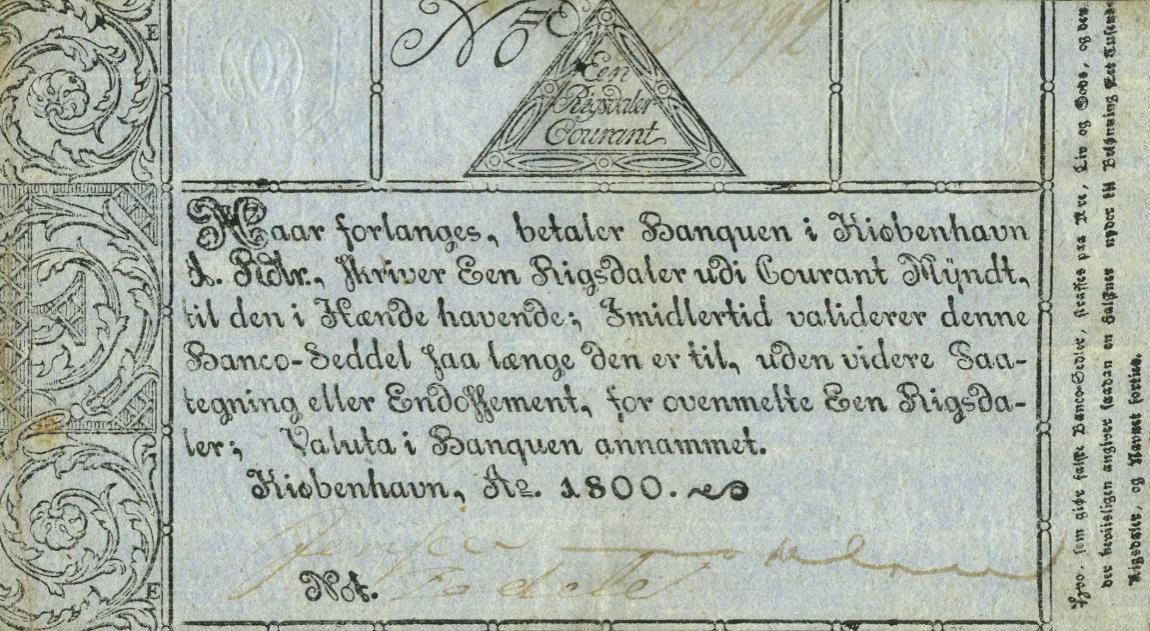 No
Een
Rigsdaler
Courant
Naar forlanges, betaler Banquen i Kiøbenhavn
1. Rdlr., skriver Een Rigsdaler udi Courant Mÿndt,
til den i Hænde havende; Imidlertid validerer denne
Banco-Seddel saa længe den er til, uden videre Paa-
tegning eller Endossement, for ovenmelte Een Rigsda-
ler; Valuta i Banquen annammet.
Kiøbenhavn, Ao. 1800.
Not.
Hvo, som giør falske Banco-Sedler, straffes paa Ære, Liv og Gods, og den
der beviisligen angiver saadan en Falskner nyder til Belønning Eet Tusende
Rigsdaler, og Navnet fortiet.
1